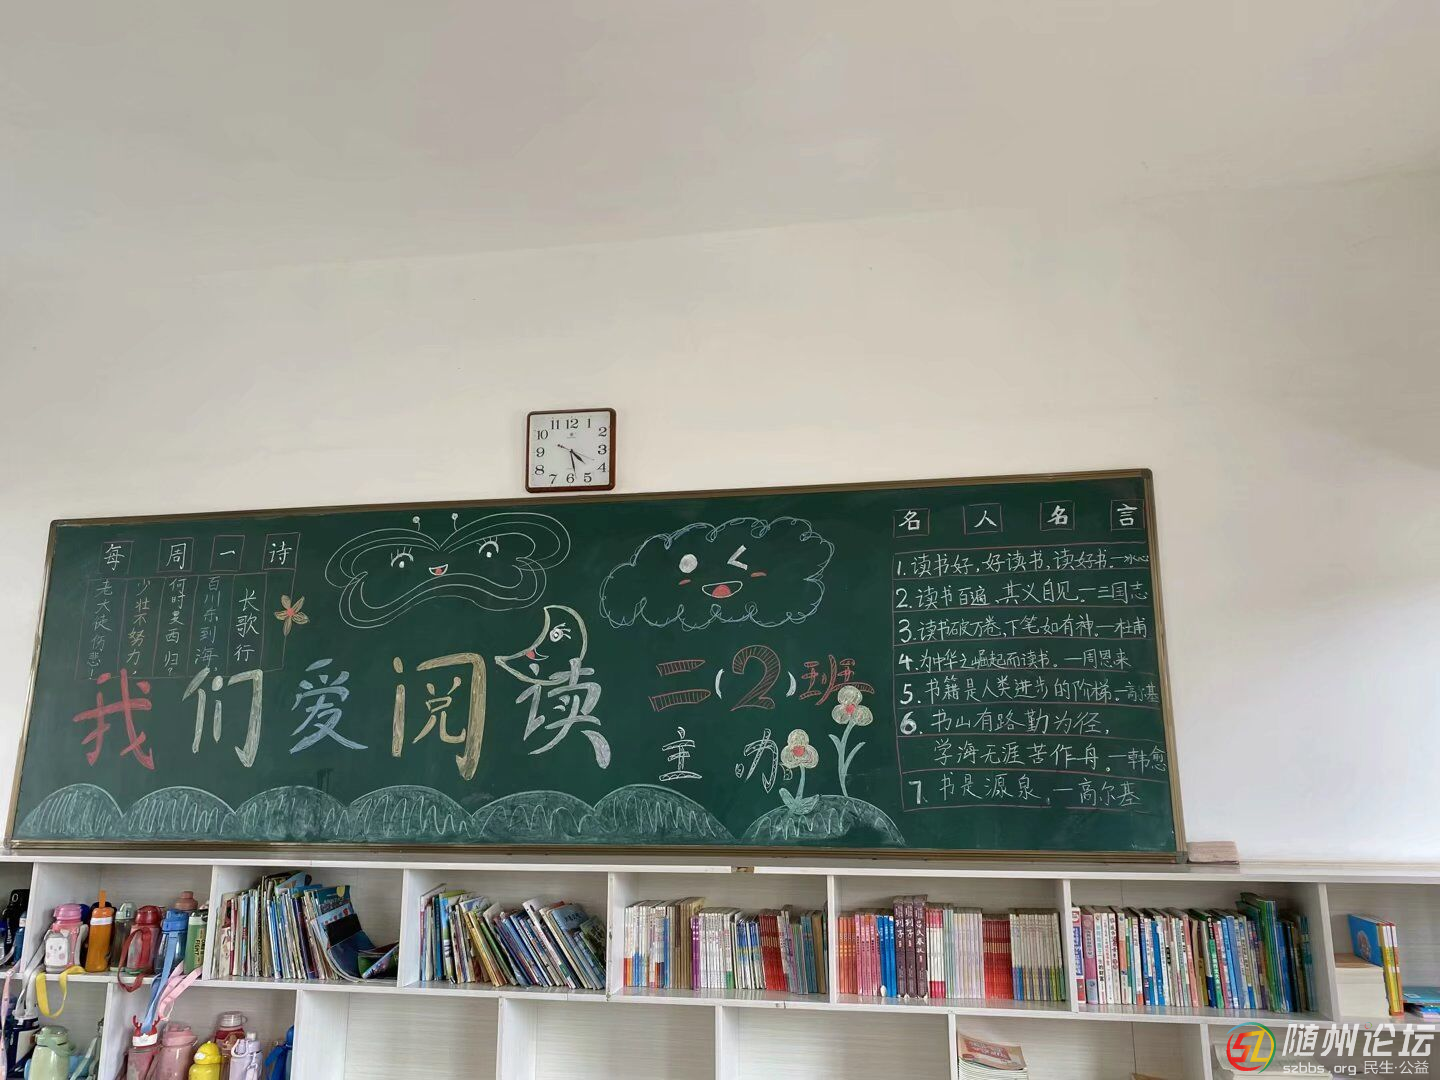 11 12 1
10 2
9 3
8 4
7 6 5
每周一诗
长歌行
百川东到海,
何时复西归?
少壮不努力,
老大徒伤悲!
我们爱阅读
二(2)班
主办
名人名言
1.读书好,好读书,读好书.—冰心
2.读书百遍,其义自见.—三国志
3.读书破万卷,下笔如有神.—杜甫
4.为中华之崛起而读书.—周恩来
5.书籍是人类进步的阶梯.—高尔基
6.书山有路勤为径,
学海无涯苦作舟.—韩愈
7.书是源泉.—高尔基
吕氏春秋
列子
随州论坛
szbbs.org 民生·公益